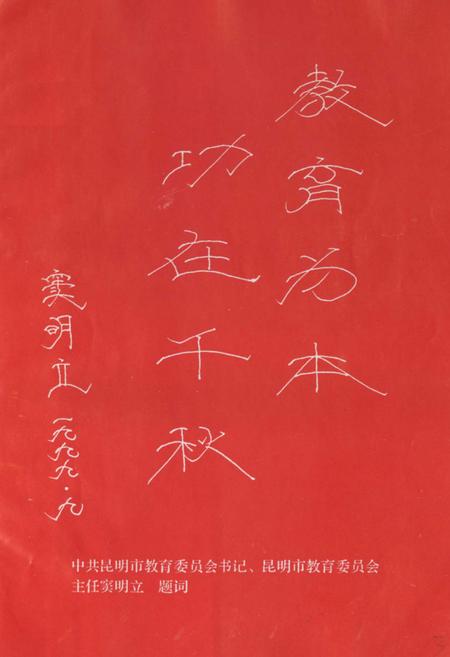 教育为本
功在千秋
窦明立
一九九九·九
中共昆明市教育委员会书记、昆明市教育委员会
主任窦明立 题词